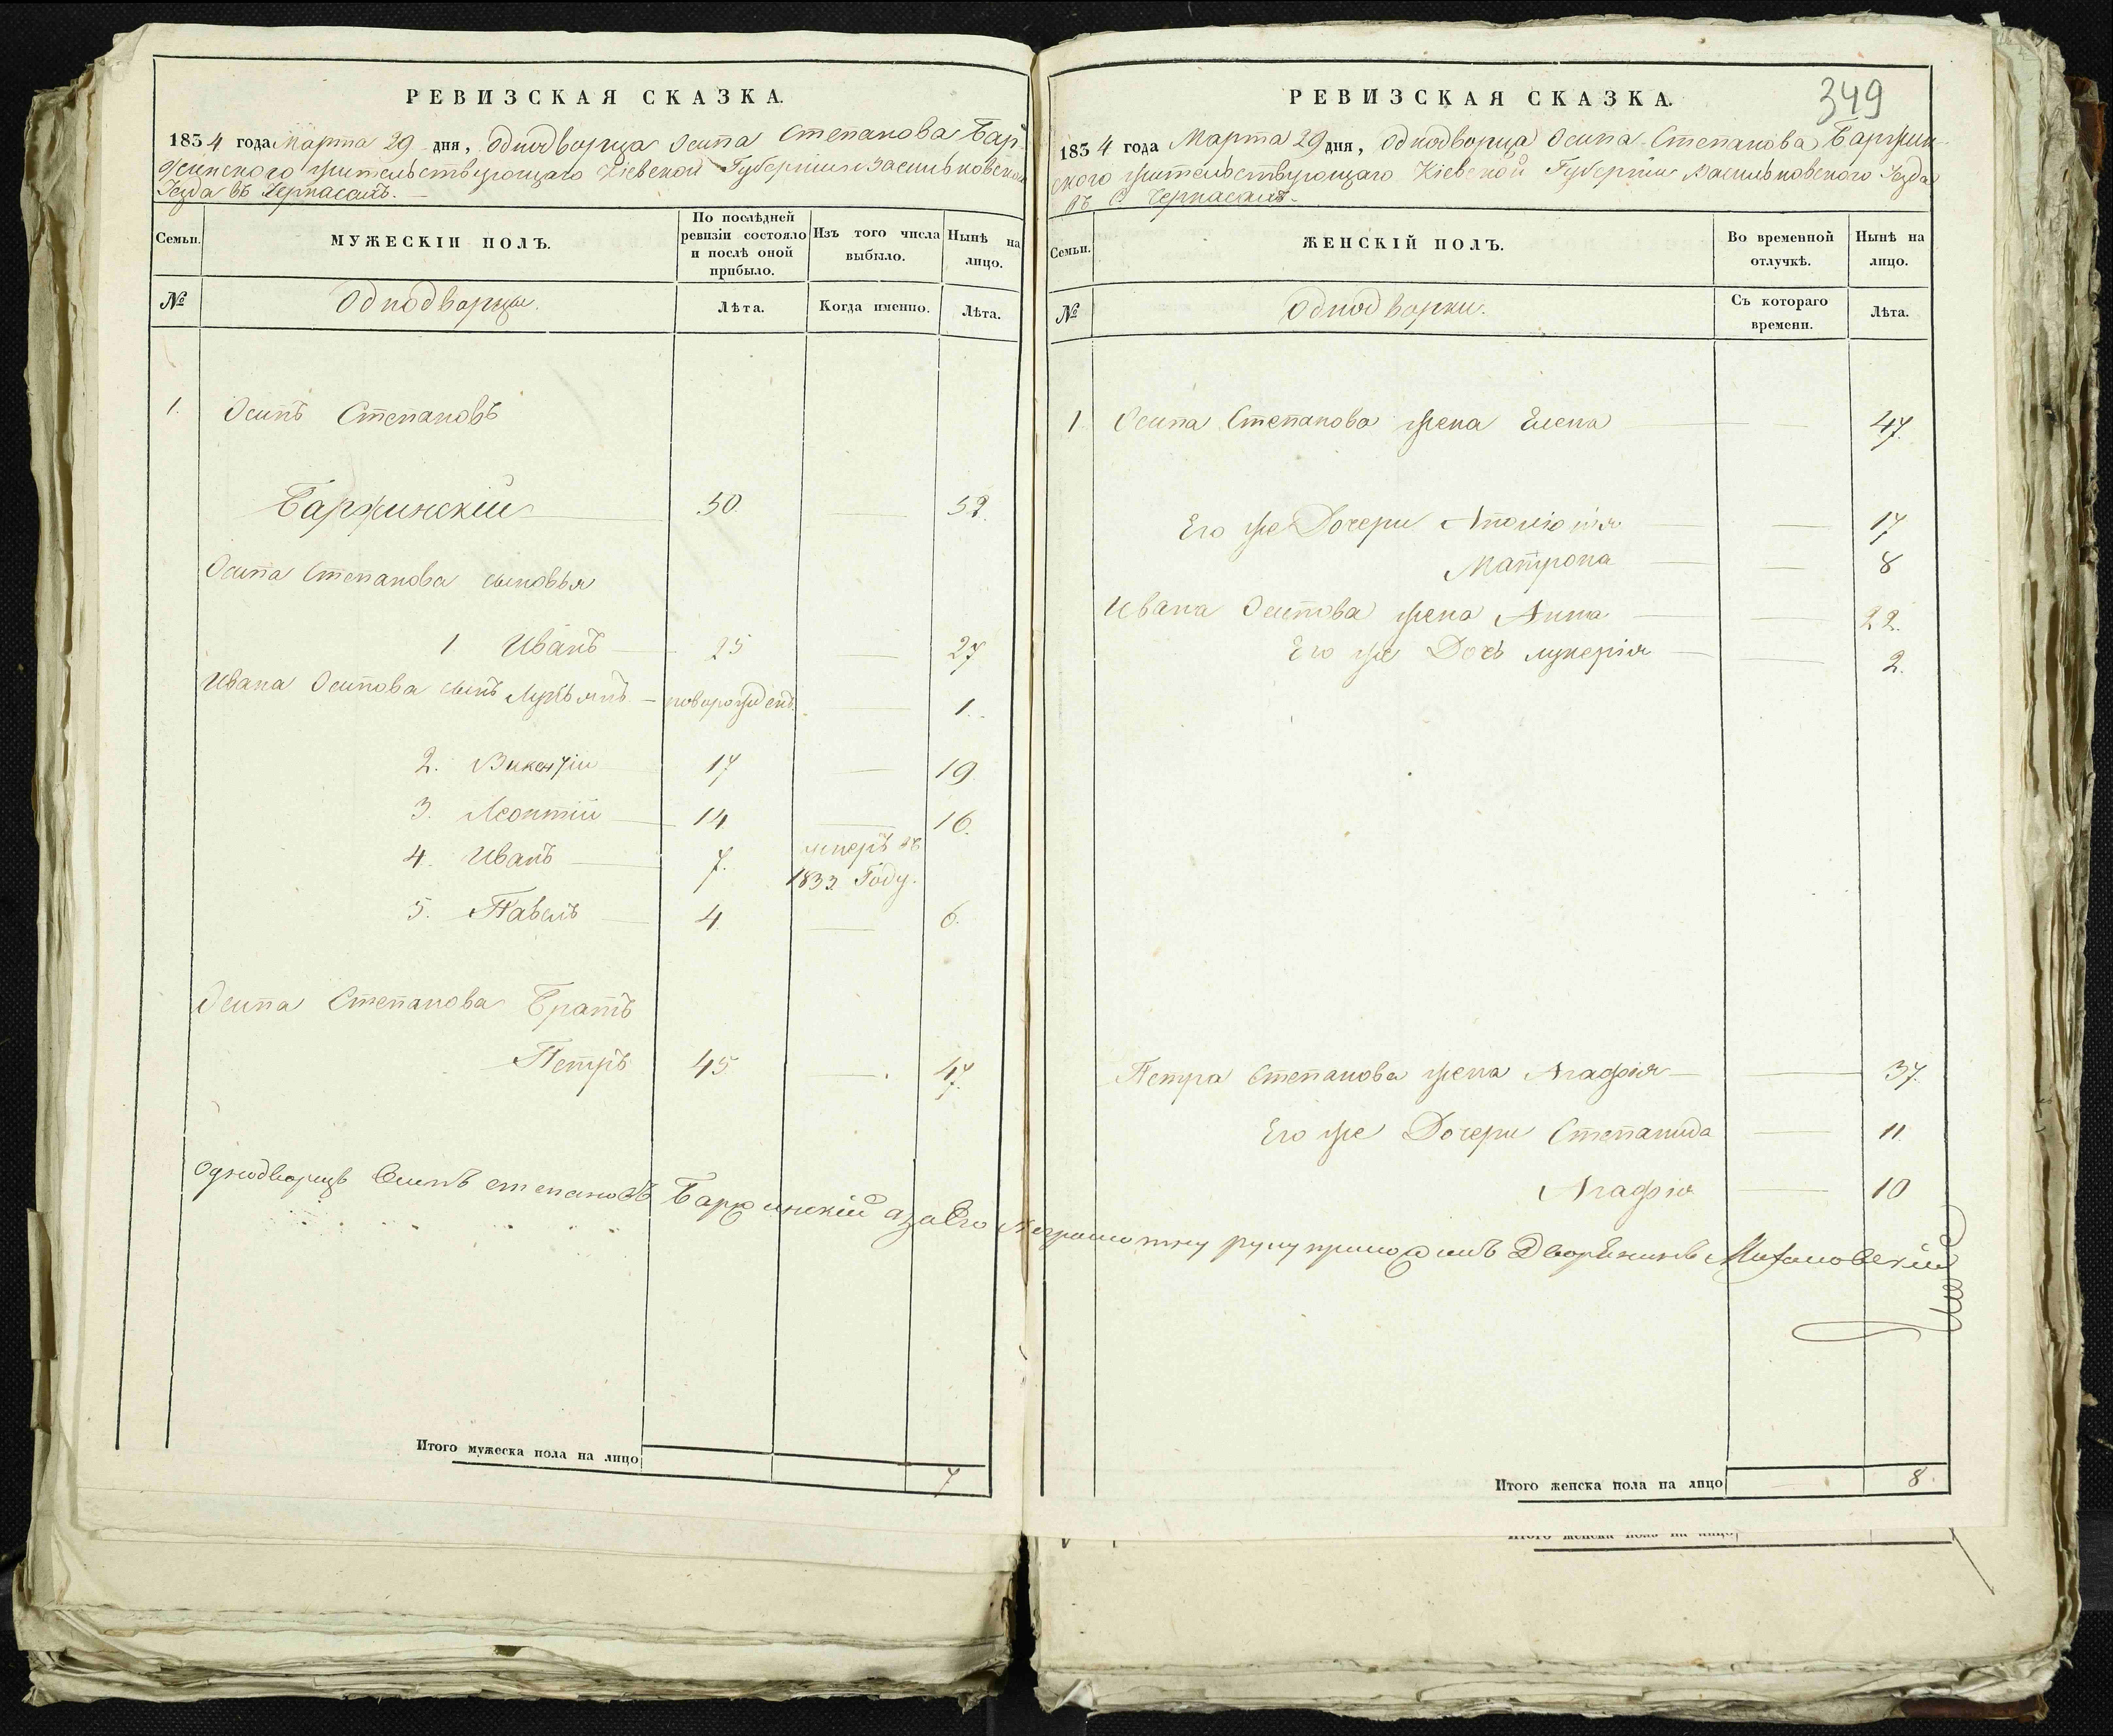 РЕВИЗСКАЯ СКАЗКА.
1834 года Марта 29 дня, Однодворца Осипа Степанова Бар-
жинского жительствующаго Кіевской Губерніи Васильковского
Уезда въ Черкасахъ.
Семьи.
МУЖЕСКІЙ ПОЛЪ.
По послѣдней ревизіи состояло и послѣ оной прибыло.
Изъ того числа выбыло.
Нынѣ на лицо.
№
Однодворцы.
Лѣта.
Когда именно.
Лѣта.
1. Осипъ Степановъ
Баржинскій 50 — 52.
Осипа Степанова сыновья
1 Иванъ 25 — 27
Ивана Осипова сынъ Лукьянъ — новорожденъ. — 1.
2. Викентій 17 — 19
3. Леонтій 14 — 16.
4. Иванъ 7. умеръ въ 1832 Году.
5. Павелъ 4 — 6.
Осипа Степанова Братъ
Петръ 45 — 47.
Итого мужеска пола на лицо 7
349
РЕВИЗСКАЯ СКАЗКА.
1834 года Марта 29 дня, Однодворца Осипа Степанова Баржин-
ского жительствующаго Кіевской Губерніи Васильковского Уезда
въ С. Черкасахъ.
Семьи.
ЖЕНСКІЙ ПОЛЪ.
Во временной отлучкѣ.
Нынѣ на лицо.
№
Однодворки.
Съ котораго времени.
Лѣта.
1. Осипа Степанова жена Елена — 47.
Его же Дочери Аполіонія — 17
Матрона — 8
Ивана Осипова жена Анна — 22.
Его же Дочь Лукерія — 2.
Петра Степанова жена Агафія — 37.
Его же Дочери Степанида — 11.
Агафія — 10
Однодворицъ Осипъ степановъ Баржинскій азаЕго Неграмотну руку приложилъ Дворенинъ
Итого женска пола на лицо 8.
Итого женска пола на лицо